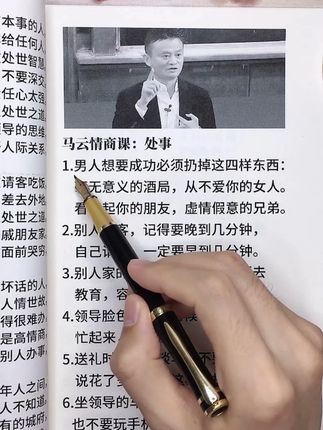 本事的人
给任何人
处世智慧
不要深交
任心太强
处世之道
领导的思维
人际关系
请客吃饭
差去外地
处世之道
戚朋友家
面前哭穷
坏话的人
人情世故
得很难办
是高情商
别人办事
年人之间
人不知道
有的城府
马云情商课：处事
1.男人想要成功必须扔掉这四样东西：
无意义的酒局，从不爱你的女人。
看 起你的朋友，虚情假意的兄弟。
2.别人 客，记得要晚到几分钟，
自己 一定要早到几分钟。
3.别人家 去
教育，容
4.领导脸色 候
忙起来，
5.送礼时 不要
说花了多
6.坐领导的车
也不要玩手机